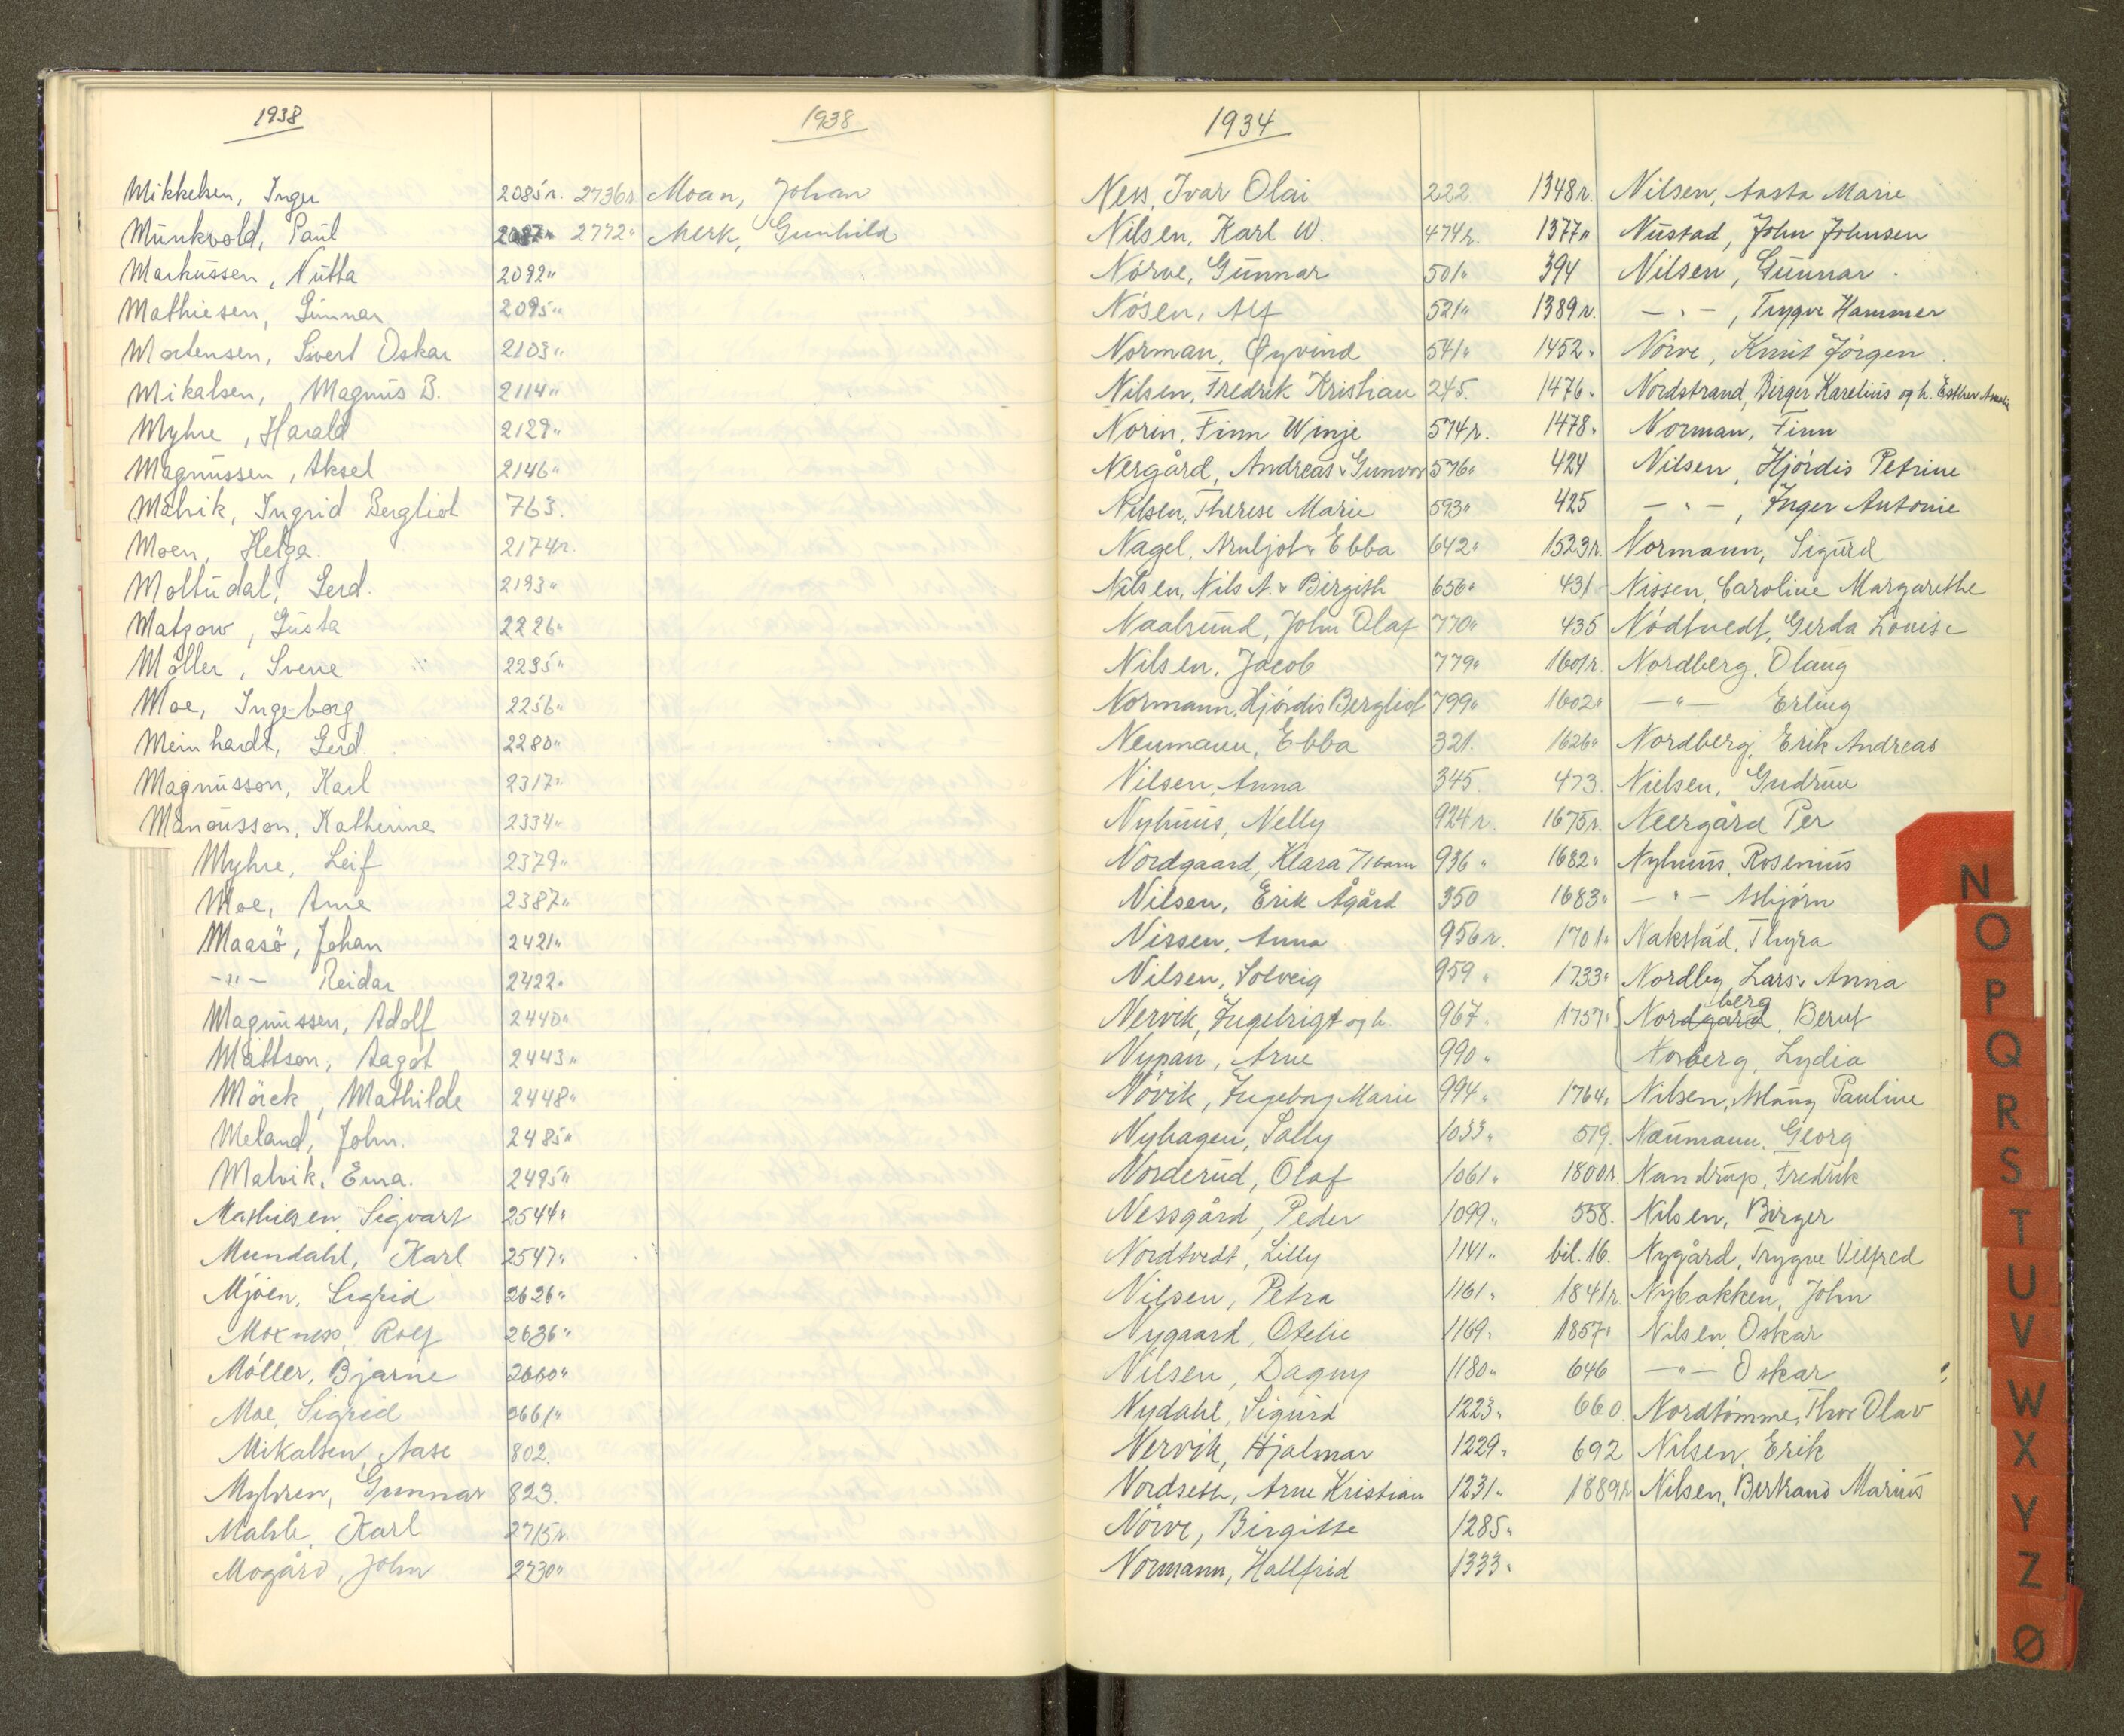 1938
Mikkelsen, Inger 2085r.
Munkvold, Paul 2087"
Markussen, Nutta 2092"
Mathiesen, Gunnar 2095"
Mortensen, Sivert Oskar 2103"
Mikalsen, Magnus B. 2114"
Myhre, Harald 2129"
Magnussen, Aksel 2146"
Malvik, Ingrid Bergliot 763.
Moen, Helga. 2174r.
Moltudal, Gerd. 2193"
Matzow, Gusta 2226"
Möller, Sverre 2235"
Moe, Ingeborg 2256"
Meinhardt, Gerd. 2280"
Magnusson, Karl 2317"
Katherine 2334"
Myhre, Leif 2379"
Moe, Arne 2387"
Maasö, Johan 2421"
-"- Reidar 2422"
Magnussen, Adolf 2440"
Mattson, Aagot 2443"
Mörck, Mathilde 2448"
Meland, John. 2485"
Malvik, Erna. 2495"
Mathiesen, Sigvart 2544"
Mundahl, Karl 2547"
Mjöen, Sigrid 2626"
Moxness, Rolf 2636"
Möller, Bjarne 2660"
Moe, Sigrid 2661"
Mikalsen, Aase 802.
Myhren, Gunnar 823.
Mahle, Karl 2715r.
Mogård, John 2730"
1938
2736r. Moan, Johan
2772" Merk, Gunhild
1934
Ness, Ivar Olai 222
Nilsen, Karl W. 474r.
Nörve, Gunnar 501"
Nösen, Alf 521"
Norman, Øyvind 541"
Nilsen, Fredrik Kristian 245.
Norin, Finn Winje 574r.
Nergård, Andreas " Gunvor 576"
Nilsen, Therese Marie 593"
Nagel, Arnljot " Ebba 642"
Nilsen, Nils A. " Birgith 656"
Naalsund, John Olaf 770"
Nilsen, Jacob 779"
Normann, Hjördis Bergliot 799"
Neumann, Ebba 321.
Nilsen, Anna 345
Nyhuus, Nelly 924r.
Nordgaard, Klara 7/barn 936"
Nilsen, Erik Ågård 350
Nissen, Anna 956r.
Nilsen, Solveig 959"
Nervik, Ingebrigt og h. 967"
Nypan, Arne 990"
Növik, Ingeborg Marie 994"
Nyhagen, Sally 1033"
Norderud, Olaf 1061"
Nessgård, Peder 1099"
Nordtvedt, Lilly 1141"
Nilsen, Petra 1161"
Nygaard, Otelie 1169"
Nilsen, Dagny 1180"
Nydahl, Sigurd 1223"
Nervik, Hjalmar 1229"
Nordseth, Arne Kristian 1231"
Nörve, Birgitte 1285"
Normann, Hallfrid 1333"
1348r. Nilsen, Aasta Marie
1377" Nustad, John Johnsen
394 Nilsen, Gunnar
1389r. -"-, Trygve Hammer
1452" Nörve, Knut Jörgen
1476" Nordstrand, Birger Karelius og h. Esther Amalie
1478" Norman, Finn
424 Nilsen, Hjördis Petrine
425 -"-, Inger Antonie
1523r. Normann, Sigurd
431 Nissen, Caroline Margarethe
435 Nödtvedt, Gerda Louise
1601r. Nordberg, Olaug
1602" -"- Erling
1626" Nordberg, Erik Andreas
473 Nielsen, Gudrun
1675r. Neergård Per
1682" Nyhuus, Rosenius
1683" -"- Asbjörn
1701" Nakstad, Thyra
1733" Nordby, Lars " Anna
berg
1757" Nordgård, Berut
Norberg, Lydia
1764" Nilsen, Aslaug Pauline
519. Naumann, Georg
1800r. Nandrup, Fredrik
558. Nilsen, Birger
bil. 16. Nygård, Trygve Vilfred
1841r. Nybakken, John
1857" Nilsen, Oskar
646 -"- Oskar
660. Nordtömme, Thor Olav
692 Nilsen, Erik
1889r Nilsen, Bertrand Marius
N
O
P
Q
R
S
T
U
V
W
X
Y
Z
Ø